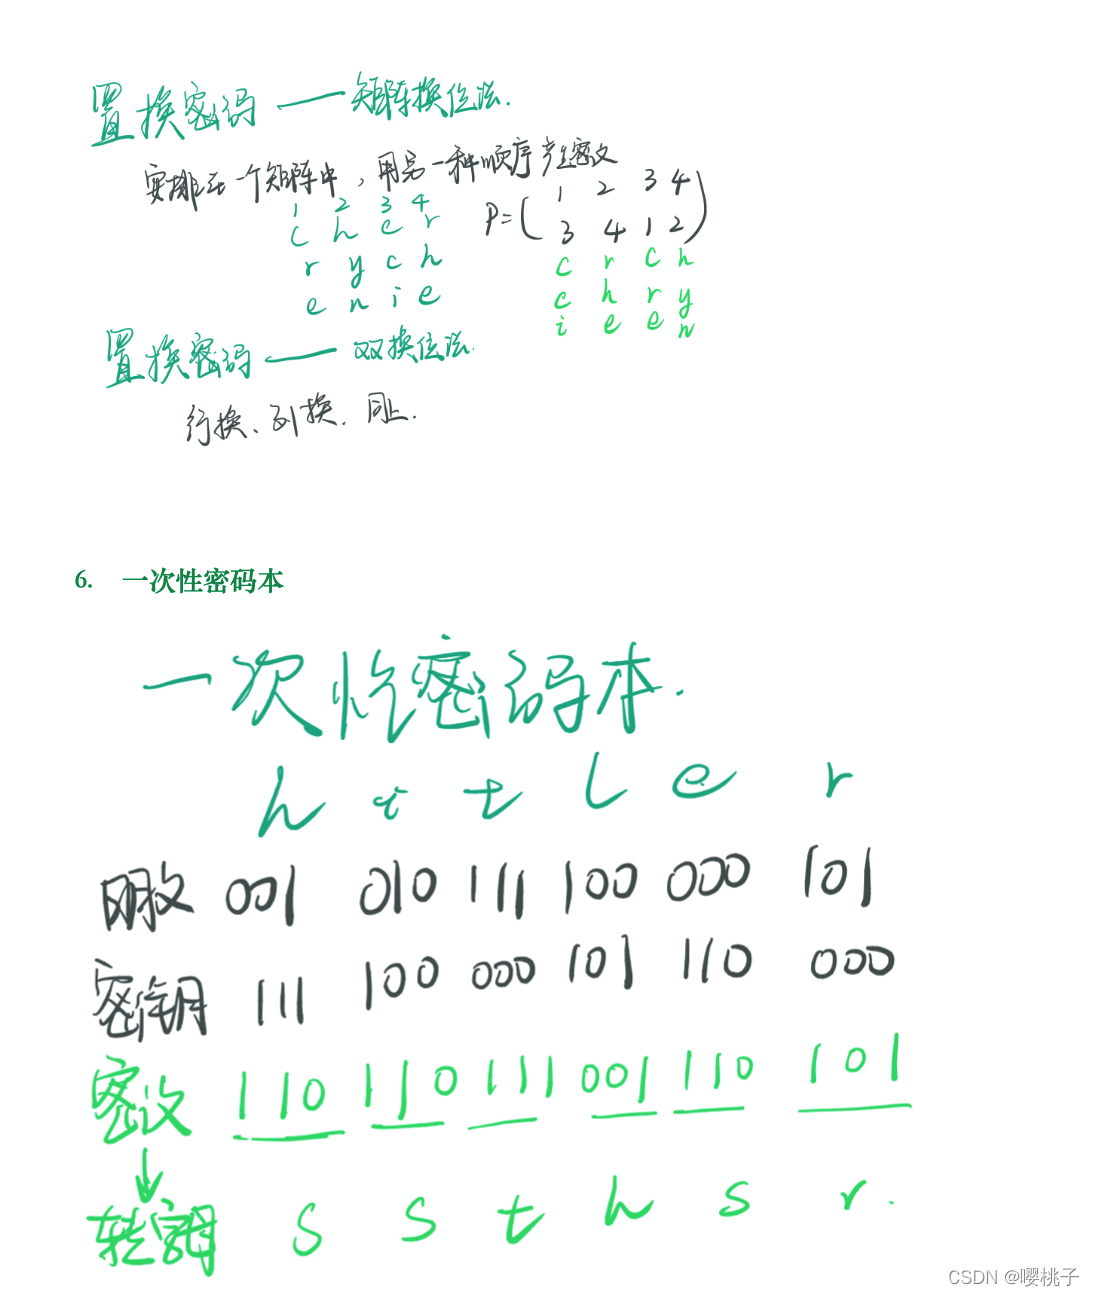 置换密码——矩阵换位法.
安排在一个矩阵中，用另一种顺序产生密文
1 2 3 4
c h e r
r y c h
e n i e
P=(1 2 3 4
3 4 1 2)
c r c h
c h r y
i e e n
置换密码——双换位法.
行换、列换. 同上.
6. 一次性密码本
一次性密码本.
h i t l e r
明文 001 010 111 100 000 101
密钥 111 100 000 101 110 000
密文 110 110 111 001 110 101
↓
转字母 s s t h s r.
CSDN @嘤桃子